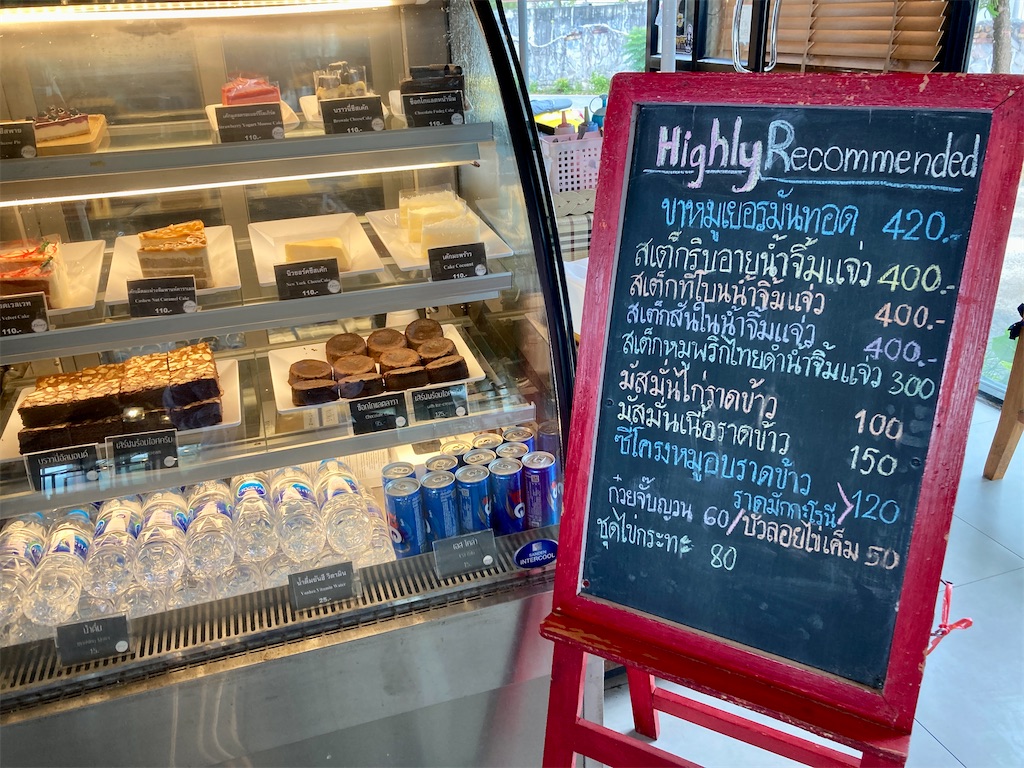 Highly Recommended
ขาหมูเยอรมันทอด 420.-
สเต๊กริบอายน้ำจิ้มแจ่ว 400.-
สเต็กทีโบนน้ำจิ้มแจ่ว 400.-
สเต็กสันในน้ำจิ้มแจ่ว 400.-
สเต็กหมูพริกไทยดำน้ำจิ้มแจ่ว 300
มัสมั่นไก่ราดข้าว 100
มัสมั่นเนื้อราดข้าว 150
ซี่โครงหมูอบราดข้าว
ราดมักกะโรนี > 120
ก๋วยจั๊บญวน 60 / บัวลอยไข่เค็ม 50
ชุดไข่กระทะ 80
Strawberry Yogurt Mousse Cake
110.-
บราวนี่ชีสเค้ก
Brownie CheeseCake
110.-
ช็อกโกแลตหน้านิ่ม
Chocolate Fudge Cake
110.-
Cashew Nut Caramel Cake
110.-
นิวยอร์คชีสเค้ก
New York CheeseCake
110.-
เค้กมะพร้าว
Cake Coconut
110.-
110.-
บราวนี่อัลมอนด์
เสิร์ฟพร้อมไอศกรีม
ช็อกโกแลตลาวา
เสิร์ฟพร้อมไอศกรีม
น้ำดื่ม
15
น้ำดื่มยันฮี วิตามิน
Yanhee Vitamin Water
25.-
เอส โคล่า
15
SANDEN
INTERCOOL